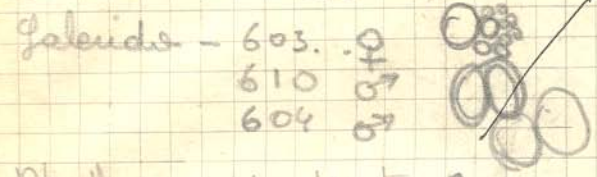 Galerida - 603. ♀
610 ♂
604 ♂